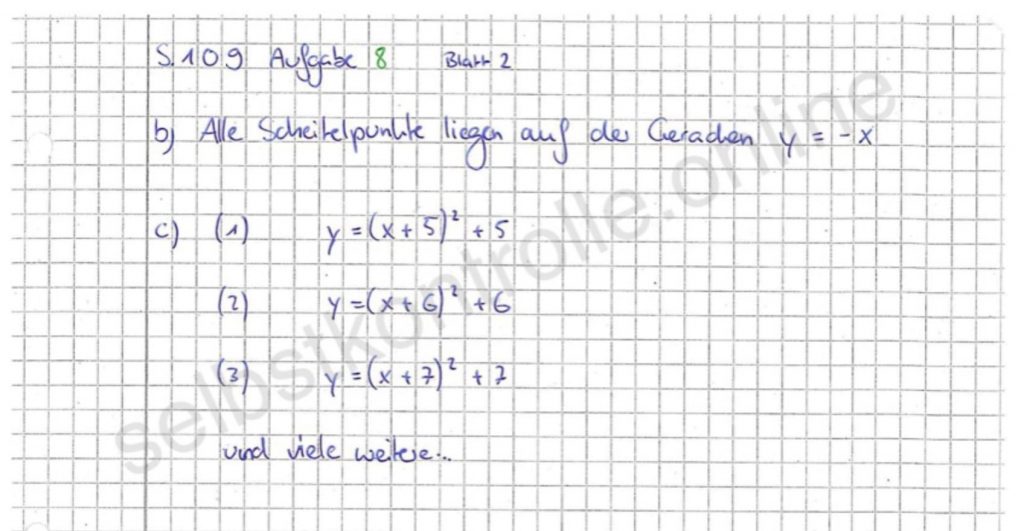 S.109 Aufgabe 8 Blatt 2
b) Alle Scheitelpunkte liegen auf der Geraden y = -x
c) (1) y = (x + 5)² + 5
(2) y = (x + 6)² + 6
(3) y = (x + 7)² + 7
und viele weitere...
selbstkontrolle.online